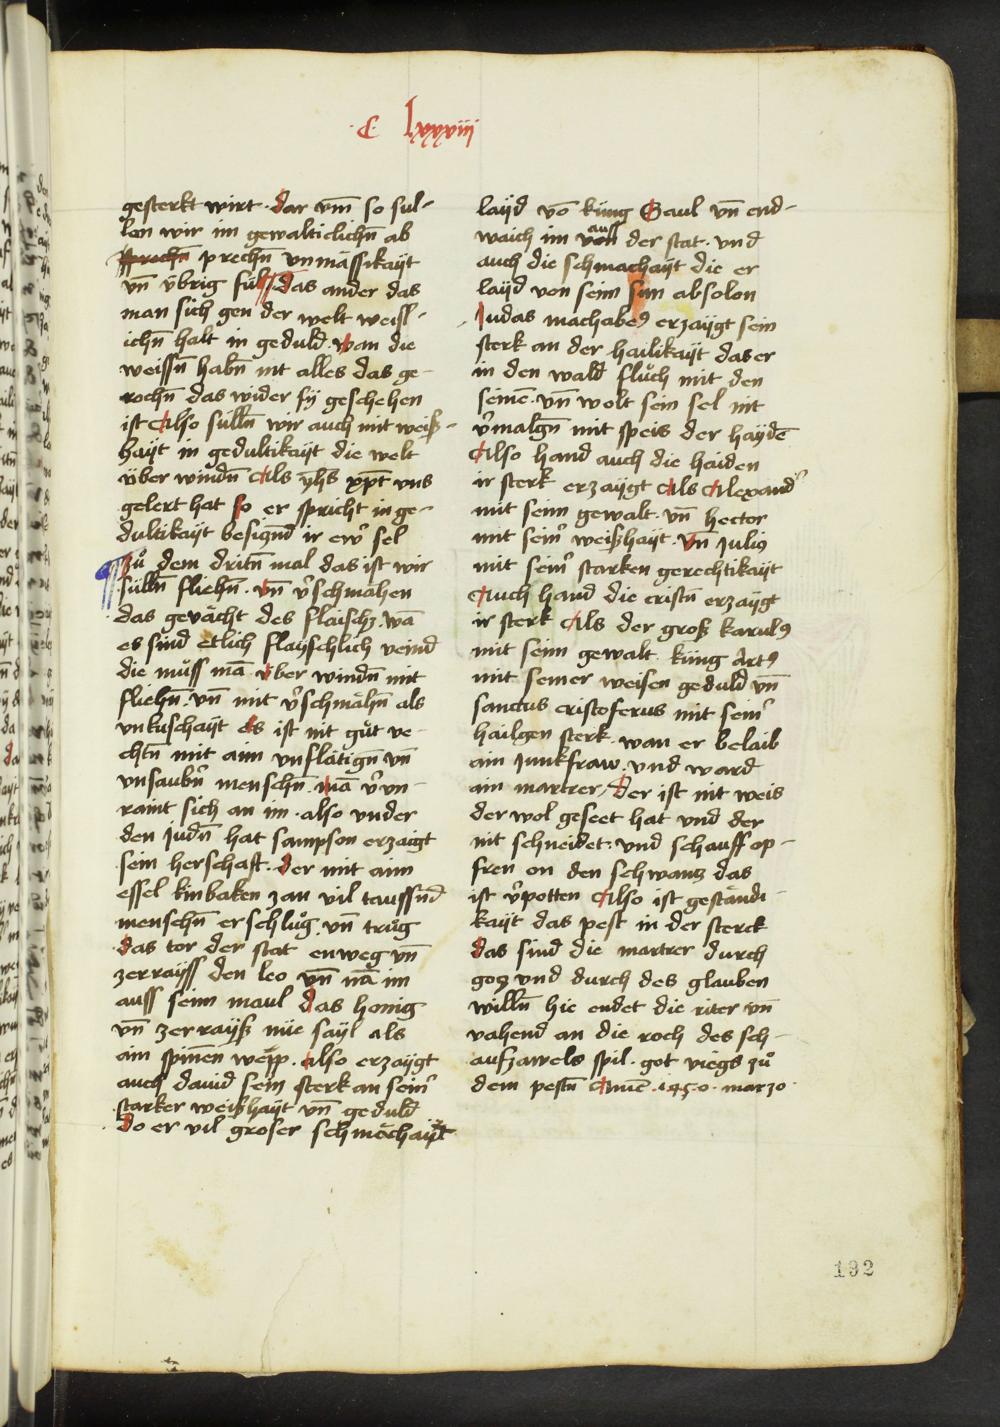 C lxxxviii
gesterkt wirt · dar vm̄ so sul-
len wir im gewalticlichn̄ ab
sprechn̄ prechn̄ vnmässikayt
vn̄ v̈brig füll Das ander das
man sich gen der welt weisl-
ichn̄ halt in geduld · wan die
weissn̄ habn̄ nit alles das ge-
rochn̄ das wider sy geschehen
ist Also sülln̄ wir auch mit weiß-
hayt in gedultikayt die welt
v̈ber windn̄ Als yh̄s xp̄t vns
gelert hat so er spricht in ge-
dultikayt besignd ir ewr̄ sel
Zuͦ dem dritn̄ mal das ist wir
sülln̄ fliehn̄ · vn̄ v̄schmähen
das gevächt des flaischz · wā
es sind etlich flayschlich veind
die müss mā v̈ber windn̄ mit
fliehn̄ · vn̄ mit v̄schmähn̄ als
vnkuschayt es ist nit guͦt ve-
chtn̄ mit aim vnflätign̄ vn̄
vnsaubn̄ menschn̄ · mā v̄vn-
raint sich an im · also vnder
den judn̄ hat sampson erzaigt
sein herschaft · Der mit aim
essel kinbaken zan vil taussnd
menschn̄ er schluͦg · vn̄ truͦg
das tor der stat enweg vn̄
zerrayss den leo vn̄ nā im
auss seim maul das honig
vn̄ zerrayß nüe sayl als
ain spinnen wepp · Also erzaygt
auch dauid sein sterk an sein̄
starker weißhayt vn̄ geduld
do er vil groser schmächayt
layd vō küng Saul vn̄ end-
waich im von auss der stat · vnd
auch die schmachayt die er
layd von seim sun absolon
Judas machabeꝰ erzaygt sein
sterk an der hailikayt das er
in den wald fluͦch mit den
seinē · vn̄ wolt sein sel nit
v̄malgn̄ mit speis der haydē
Also hand auch die haiden
ir sterk erzaygt Als Alexand̄
mit seim gewalt · vn̄ hector
mit sein̄ weißhayt · vn̄ Juliꝰ
mit sein̄ starken gerechtikayt
Auch hand die cristn̄ erzaygt
ir sterk Als der groß karulꝰ
mit seim gewalt · küng Artꝰ
mit seiner weisen geduld vn̄
sanctus cristoferus mit sein̄
hailgen sterk · wan er belaib
ain Junkfraw · vnd ward
ain martrer / Der ist nit weis
der wol geseet hat vnd der
nit schneidet · vnd schauff op-
fren on den schwantz das
ist v̄potten Also ist geständi-
kayt das pest in der sterck
das sind die martrer durch
goꝫ vnd durch des glauben
willn̄ hie endet die riter vn̄
vahend an die roch des sch-
aufzawels spil · got viegs zuͦ
dem pestn̄ Amē · 1450 · marzo ·
192